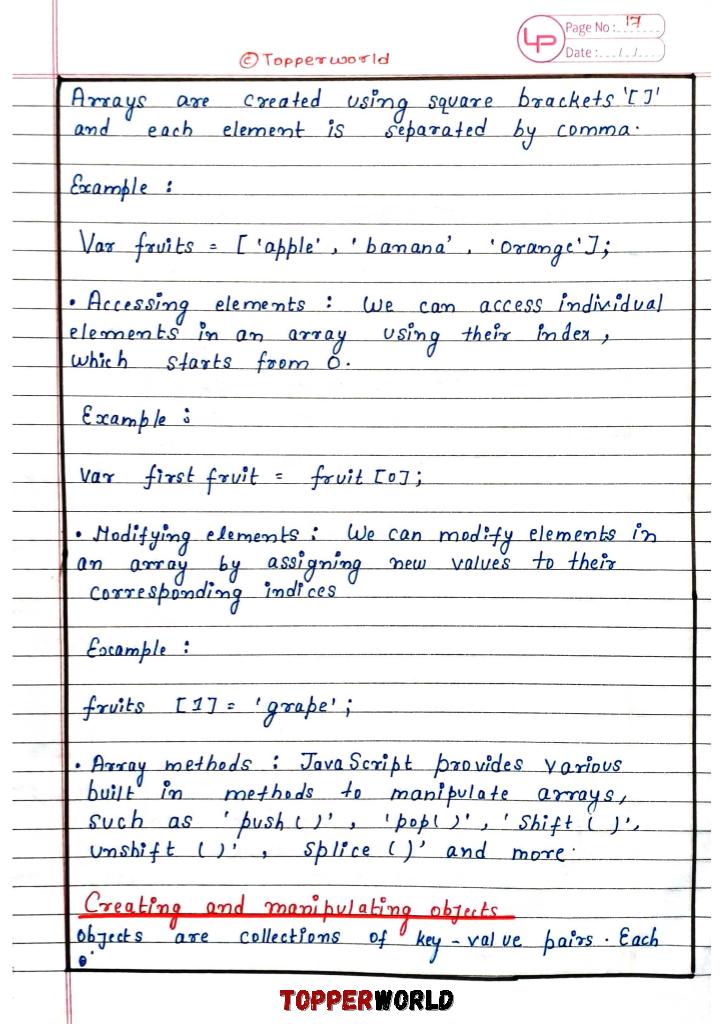 © Topperworld
Page No : 17
Date : ... / .. / ....
Arrays are created using square brackets '[ ]'
and each element is separated by comma.
Example :
Var fruits = ['apple', 'banana', 'orange'];
• Accessing elements : We can access individual
elements in an array using their index,
which starts from 0.
Example :
var first fruit = fruit [0];
• Modifying elements : We can modify elements in
an array by assigning new values to their
corresponding indices
Example :
fruits [1] = 'grape';
• Array methods : JavaScript provides various
built in methods to manipulate arrays,
such as 'push ()', 'pop()', 'shift ( )',
unshift ( )', splice ()' and more.
Creating and manipulating objects
Objects are collections of key-value pairs. Each
TOPPERWORLD